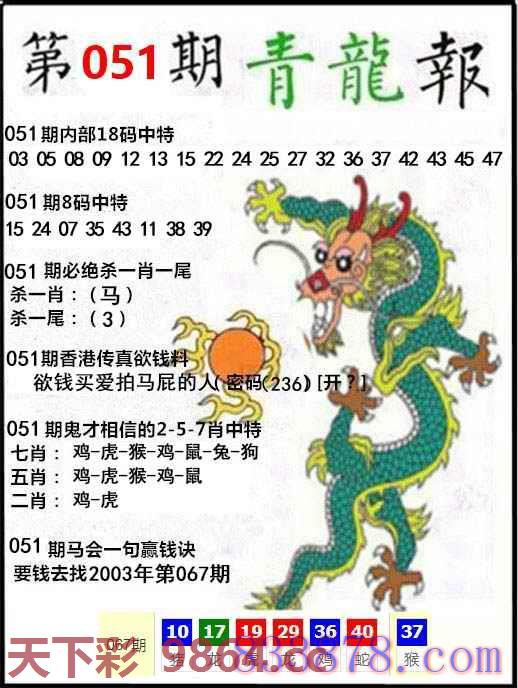 第051期青龍報
051期内部18码中特
03 05 08 09 12 13 15 22 24 25 27 32 36 37 42 43 45 47
051期8码中特
15 24 07 35 43 11 38 39
051期必绝杀一肖一尾
杀一肖：(马)
杀一尾：(3)
051期香港传真欲钱料
欲钱买爱拍马屁的人(密码(236)[开?]
051期鬼才相信的2-5-7肖中特
七肖：鸡-虎-猴-鸡-鼠-兔-狗
五肖：鸡-虎-猴-鸡-鼠
二肖：鸡-虎
051期马会一句赢钱诀
要钱去找2003年第067期
067期 10 17 19 29 36 40 37
猪 龙 虎 龙 鸡 蛇 猴
天下彩 9864.cc